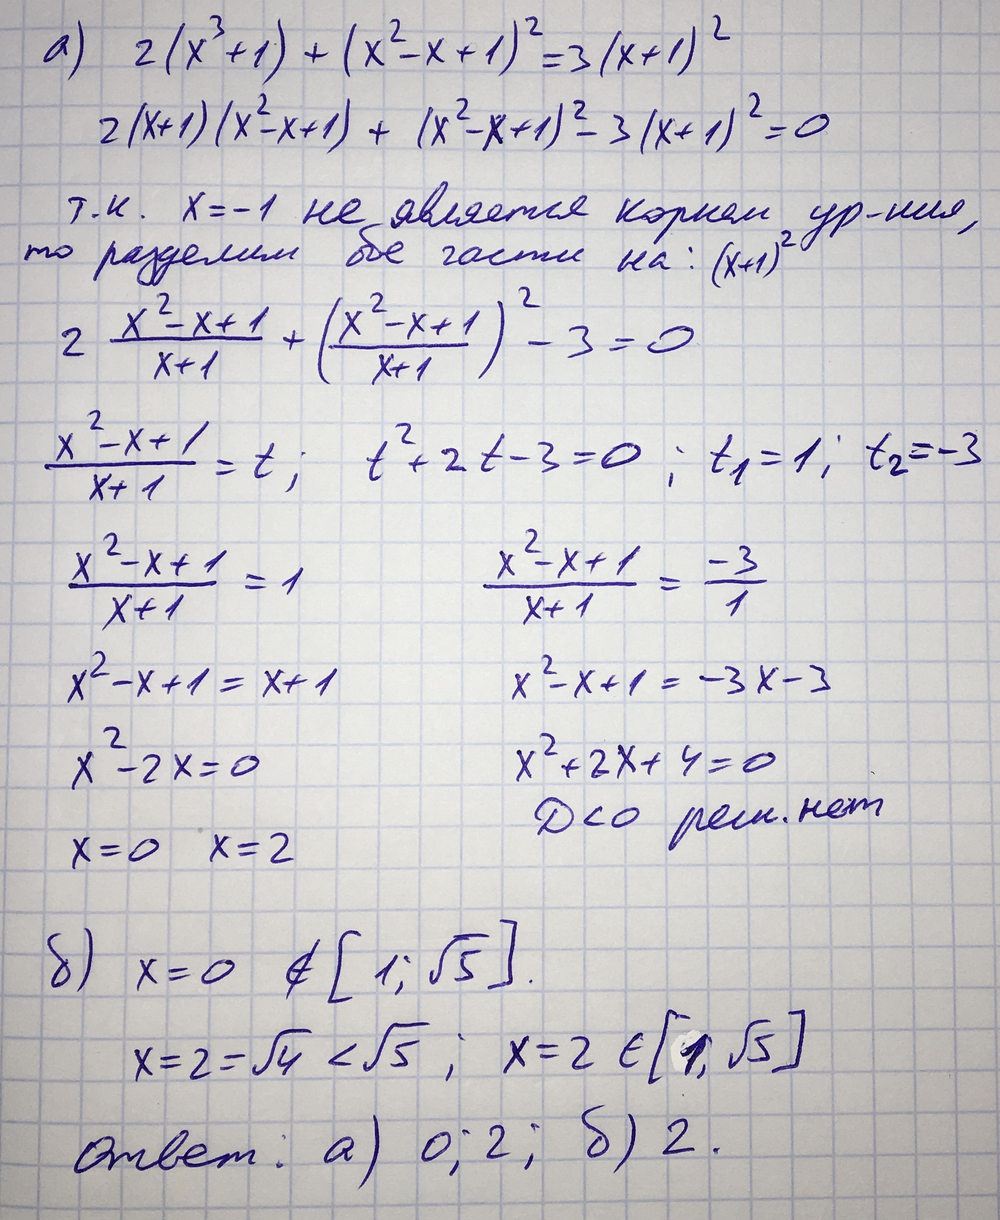 а) 2(x³+1) + (x²-x+1)² = 3(x+1)²
2(x+1)(x²-x+1) + (x²-x+1)² - 3(x+1)² = 0
т.к. x=-1 не является корнем ур-ния,
то разделим обе части на: (x+1)²
2 (x²-x+1)/(x+1) + ((x²-x+1)/(x+1))² - 3 = 0
(x²-x+1)/(x+1) = t; t²+2t-3=0; t₁=1; t₂=-3
(x²-x+1)/(x+1) = 1 (x²-x+1)/(x+1) = -3/1
x²-x+1 = x+1 x²-x+1 = -3x-3
x²-2x=0 x²+2x+4=0
D<0 реш. нет
x=0 x=2
б) x=0 ∉ [1; √5].
x=2=√4 < √5; x=2 ∈ [1; √5]
Ответ: а) 0; 2; б) 2.